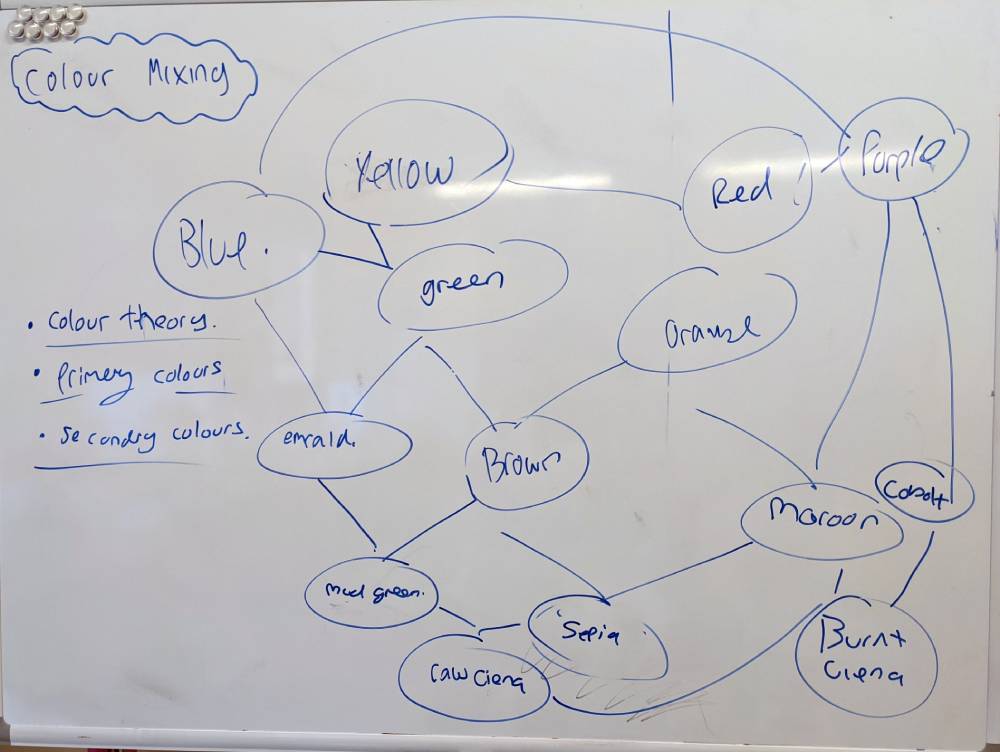 Colour Mixing
Yellow
Purple
Red
Blue.
green
Orange
• Colour theory.
• Primery colours
• Secondry colours.
emrald.
Brown
Cobolt
Maroon
mud green.
Sepia
Burnt
Ciena
raw Ciena